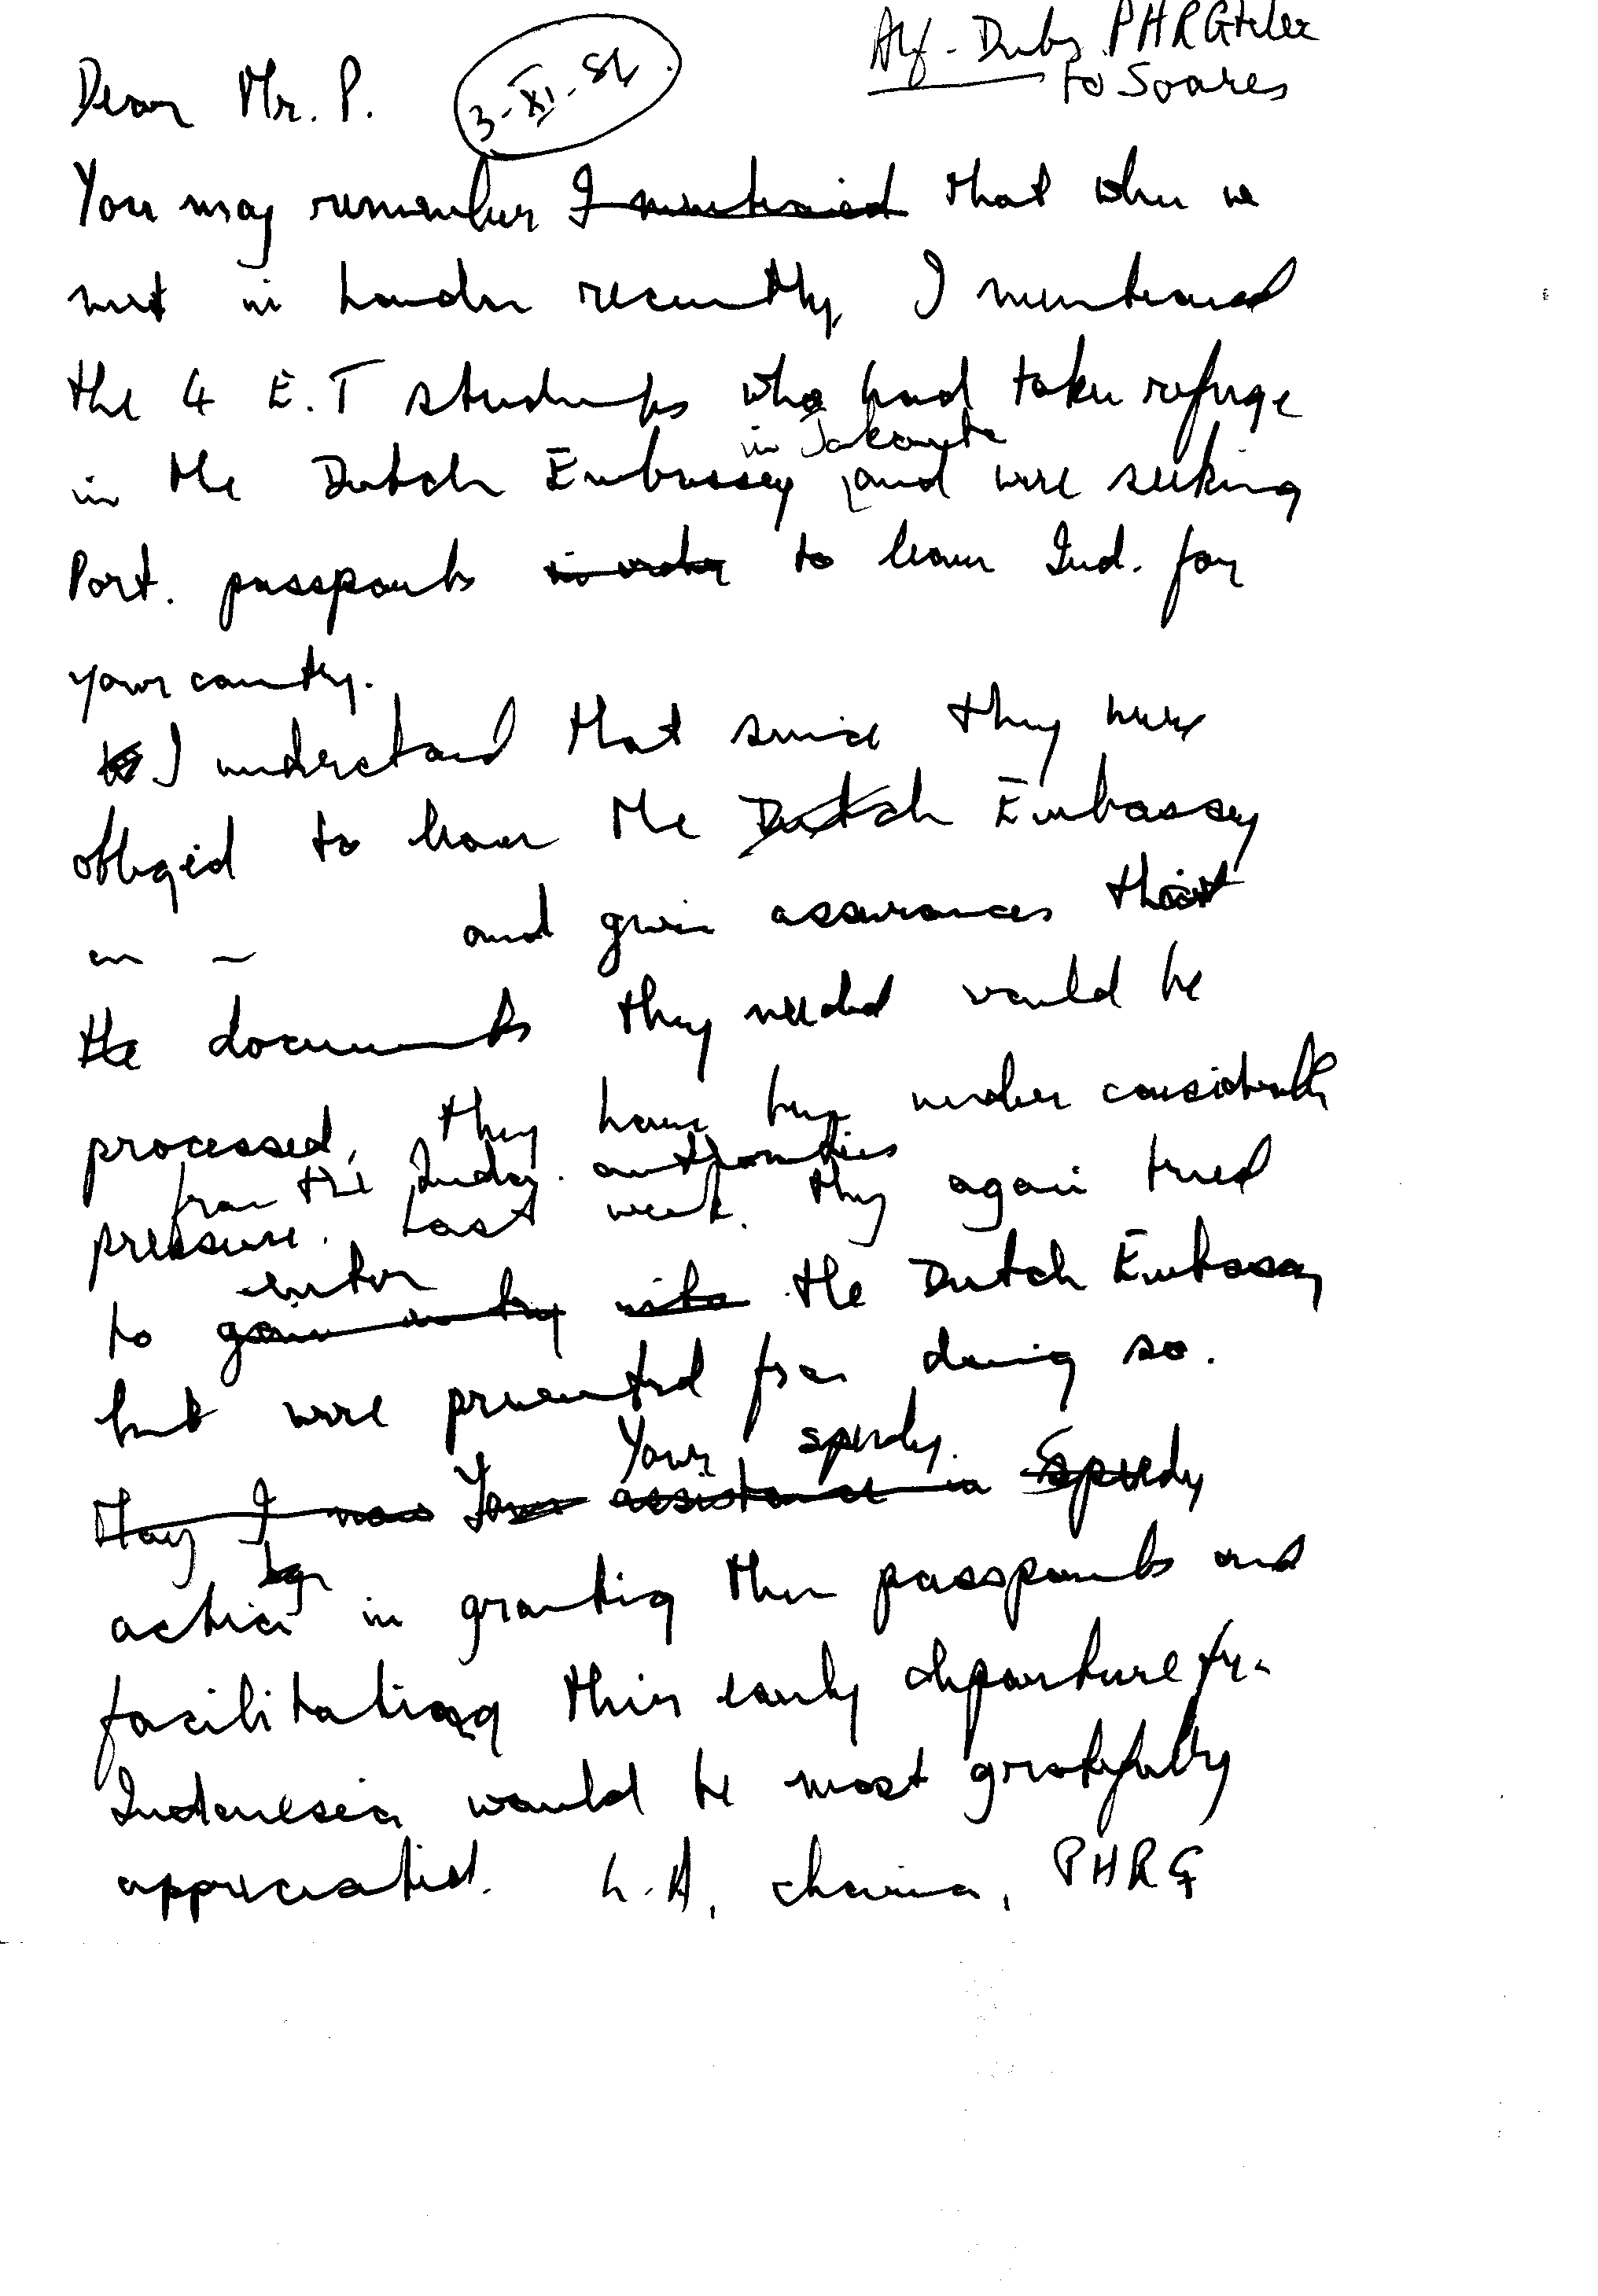 Alf - Dubs PHRG telex
to Soares
Dear Mr. P.
3-XI-86
You may remember I mentioned that when we
met in London recently, I mentioned
the 4 E.T students who had taken refuge
in Jakarta
in the Dutch Embassy and were seeking
Port. passports in order to leave Ind. for
your country.
I understand that since they were
obliged to leave the Dutch Embassy
on – and given assurances that
the documents they needed would be
processed, they have been under considerable
from the Indon. authorities
pressure. Last week they again tried
enter
to gain entry into the Dutch Embassy
but were prevented from doing so.
Your speedy
May I now Your assistance in Speedy
action in granting them passports and
facilitating their early departure from
Indonesia would be most gratefully
appreciated. L.A, chairman, PHRG